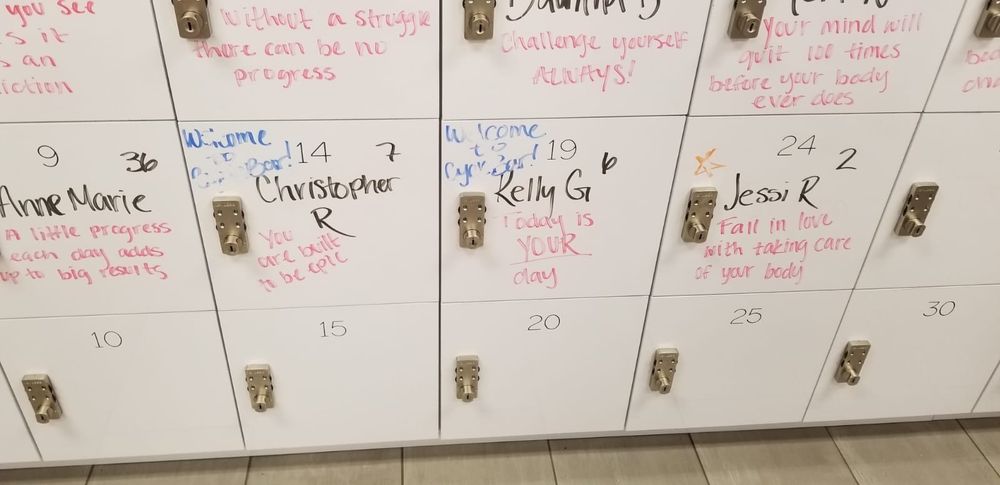 you see
s it
s an
iction
Without a struggle
there can be no
progress
Challenge yourself
ALWAYS!
Your mind will
quit 100 times
before your body
ever does
9
36
Anne Marie
A little progress
each day adds
up to big results
Welcome
14
7
Christopher
R
You
are built
to be epic
Welcome
to
19
6
Kelly G
Today is
YOUR
day
24
2
Jessi R
Fall in love
with taking care
of your body
10
15
20
25
30